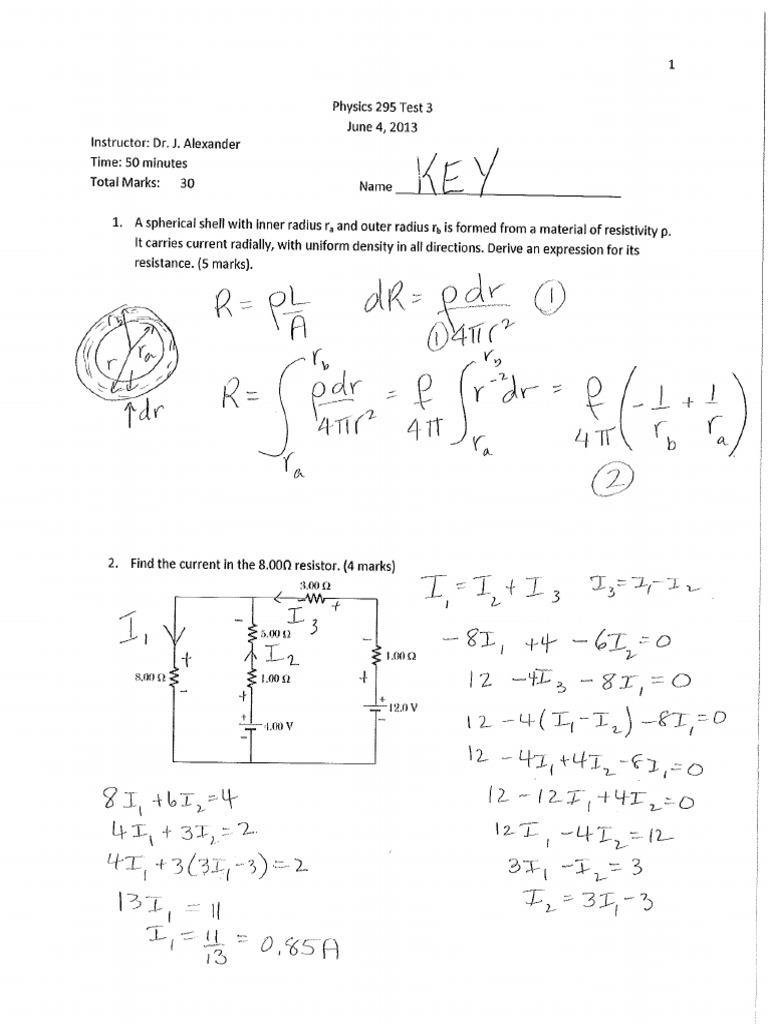 1
Physics 295 Test 3
June 4, 2013
Instructor: Dr. J. Alexander
Time: 50 minutes
Total Marks: 30
Name KEY
1. A spherical shell with inner radius rₐ and outer radius r_b is formed from a material of resistivity ρ.
It carries current radially, with uniform density in all directions. Derive an expression for its
resistance. (5 marks).
R = ρL/A dR = ρdr/4πr² ① ①
r_b r rₐ
↑dr
R = ∫_{rₐ}^{r_b} ρdr/4πr² = ρ/4π ∫_{rₐ}^{r_b} r⁻²dr = ρ/4π (-1/r_b + 1/rₐ)
②
2. Find the current in the 8.00Ω resistor. (4 marks)
3.00 Ω
I₁
- I₃ +
5.00 Ω
I₂
1.00 Ω
1.00 Ω
8.00 Ω
+ -
12.0 V
4.00 V
I₁ = I₂ + I₃ I₃ = I₁ - I₂
-8I₁ + 4 - 6I₂ = 0
12 - 4I₃ - 8I₁ = 0
12 - 4(I₁ - I₂) - 8I₁ = 0
12 - 4I₁ + 4I₂ - 8I₁ = 0
12 - 12I₁ + 4I₂ = 0
12I₁ - 4I₂ = 12
3I₁ - I₂ = 3
I₂ = 3I₁ - 3
8I₁ + 6I₂ = 4
4I₁ + 3I₂ = 2
4I₁ + 3(3I₁ - 3) = 2
13I₁ = 11
I₁ = 11/13 = 0.85A